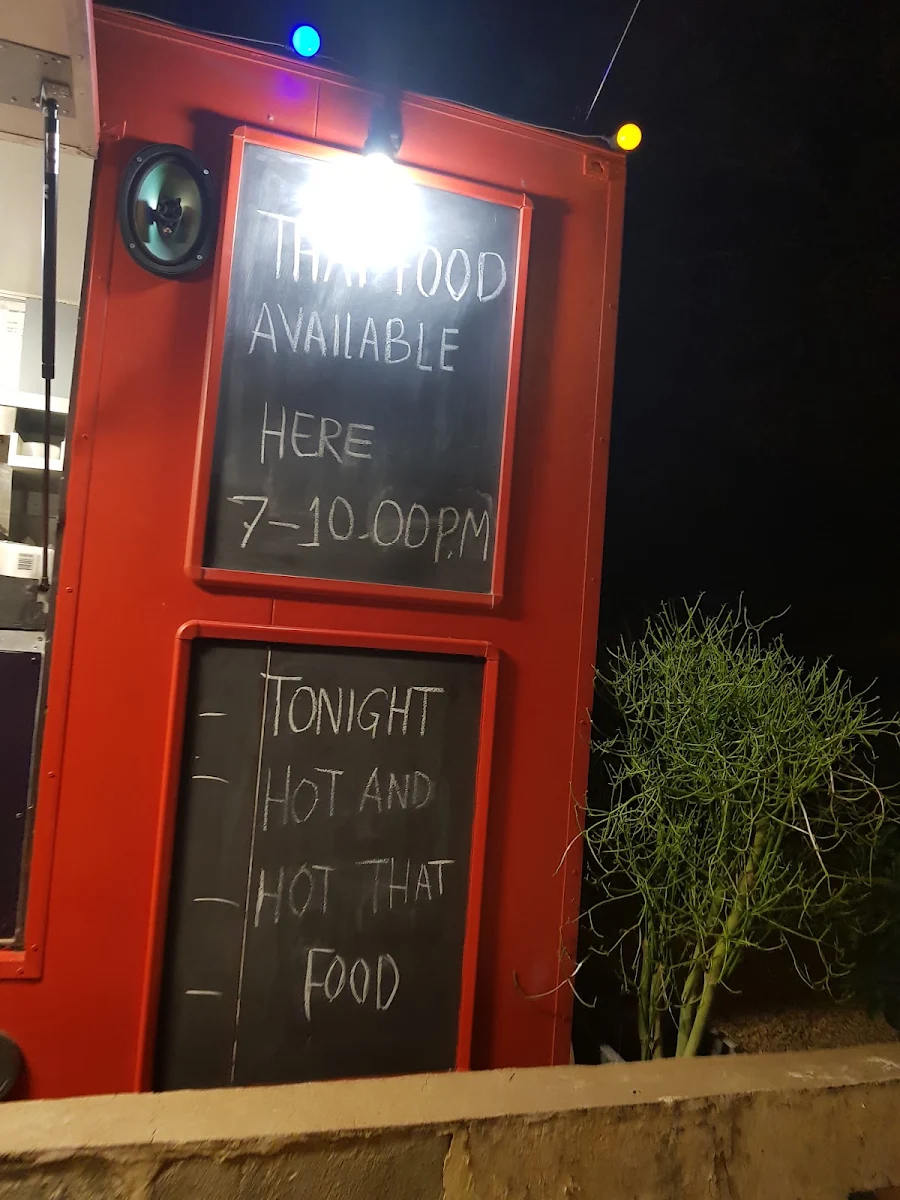 THAI FOOD
AVAILABLE
HERE
7-10.00 P.M
TONIGHT
HOT AND
HOT THAT
FOOD